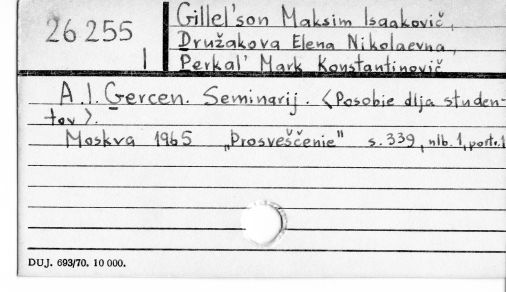 26 255
I
Gillel'son Maksim Isaakovič,
Družakova Elena Nikolaevna,
Perkal' Mark Konstantinovič
A.I. Gercen. Seminarij. <Posobie dlja studen-
tov>.
Moskva 1965 „Prosveščenie" s. 339, nlb. 1, portr. 1
DUJ. 693/70. 10 000.